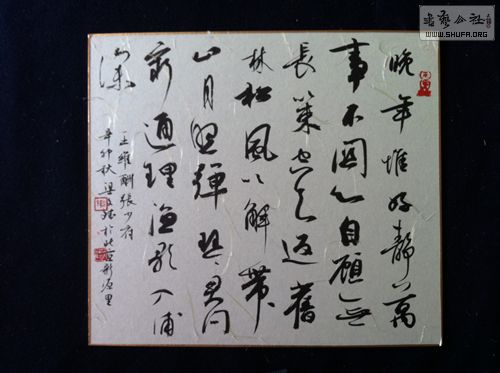 晚年惟好靜萬
事不關心自顧無
長策空知返舊
林松風吹解帶
山月照彈琴君問
窮通理漁歌入浦
深
王維酬張少府
辛卯秋梁文於北京新源里
書藝公社
WWW.SHUFA.ORG